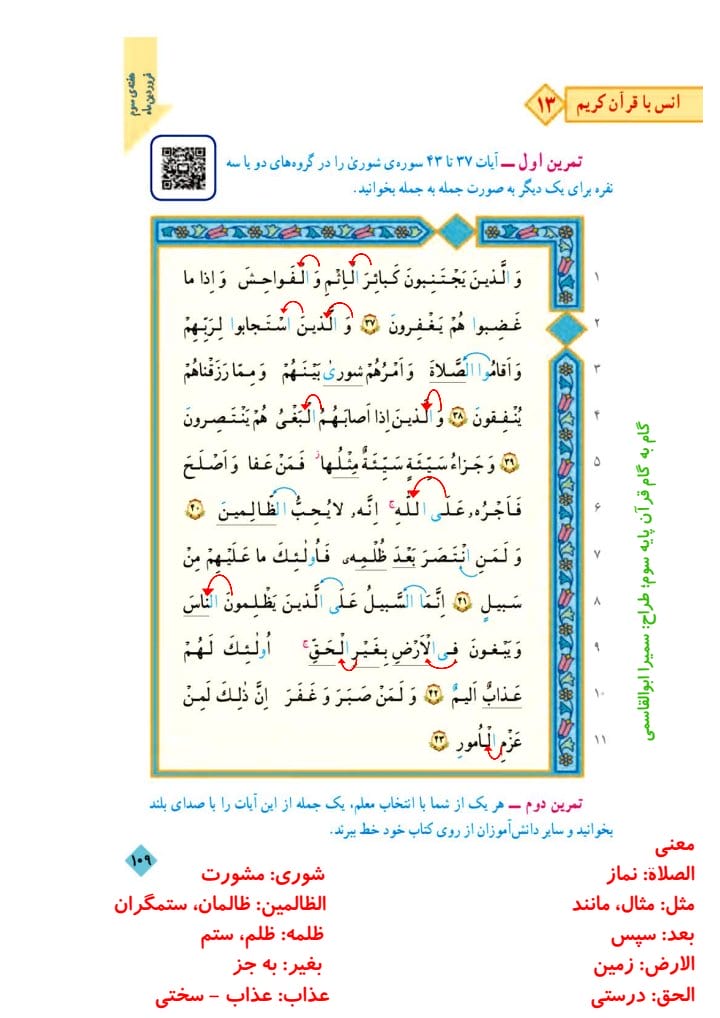 هفته‌ی سوم
فروردین‌ماه
۱۳
انس با قرآن کریم
تمرین اول ــ آیات ۳۷ تا ۴۳ سوره‌ی شوریٰ را در گروه‌های دو یا سه
نفره برای یک دیگر به صورت جمله به جمله بخوانید.
۱ وَ الَّذینَ یَجْتَنِبونَ کَبائِرَ الْاِثْمِ وَ الْفَواحِشَ وَ اِذا ما
۲ غَضِبوا هُمْ یَغْفِرونَ ﴿۳۷﴾ وَ الَّذینَ اسْتَجابوا لِرَبِّهِمْ
۳ وَ اَقامُوا الصَّلاةَ وَ اَمْرُهُمْ شوریٰ بَیْنَهُمْ وَ مِمّا رَزَقْناهُمْ
۴ یُنْفِقونَ ﴿۳۸﴾ وَ الَّذینَ اِذا اَصابَهُمُ الْبَغْیُ هُمْ یَنْتَصِرونَ
۵ ﴿۳۹﴾ وَ جَزاءُ سَیِّئَةٍ سَیِّئَةٌ مِثْلُها ۖ فَمَنْ عَفا وَ اَصْلَحَ
۶ فَاَجْرُهُ، عَلَی اللّٰهِ ۚ اِنَّهُ، لا یُحِبُّ الظّالِمینَ ﴿۴۰﴾
۷ وَ لَمَنِ انْتَصَرَ بَعْدَ ظُلْمِهٖ فَاُولٰئِکَ ما عَلَیْهِمْ مِنْ
۸ سَبیلٍ ﴿۴۱﴾ اِنَّمَا السَّبیلُ عَلَی الَّذینَ یَظْلِمونَ النّاسَ
۹ وَ یَبْغونَ فِی الْاَرْضِ بِغَیْرِ الْحَقِّ ۚ اُولٰئِکَ لَهُمْ
۱۰ عَذابٌ اَلیمٌ ﴿۴۲﴾ وَ لَمَنْ صَبَرَ وَ غَفَرَ اِنَّ ذٰلِکَ لَمِنْ
۱۱ عَزْمِ الْاُمورِ ﴿۴۳﴾
گام به گام قرآن پایه سوم؛ طراح: سمیرا ابوالقاسمی
تمرین دوم ــ هر یک از شما با انتخاب معلم، یک جمله از این آیات را با صدای بلند
بخوانید و سایر دانش‌آموزان از روی کتاب خود خط ببرند.
۱۰۹
معنی
الصلاة: نماز
مثل: مثال، مانند
بعد: سپس
الارض: زمین
الحق: درستی
شوری: مشورت
الظالمین: ظالمان، ستمگران
ظلمه: ظلم، ستم
بغیر: به جز
عذاب: عذاب – سختی